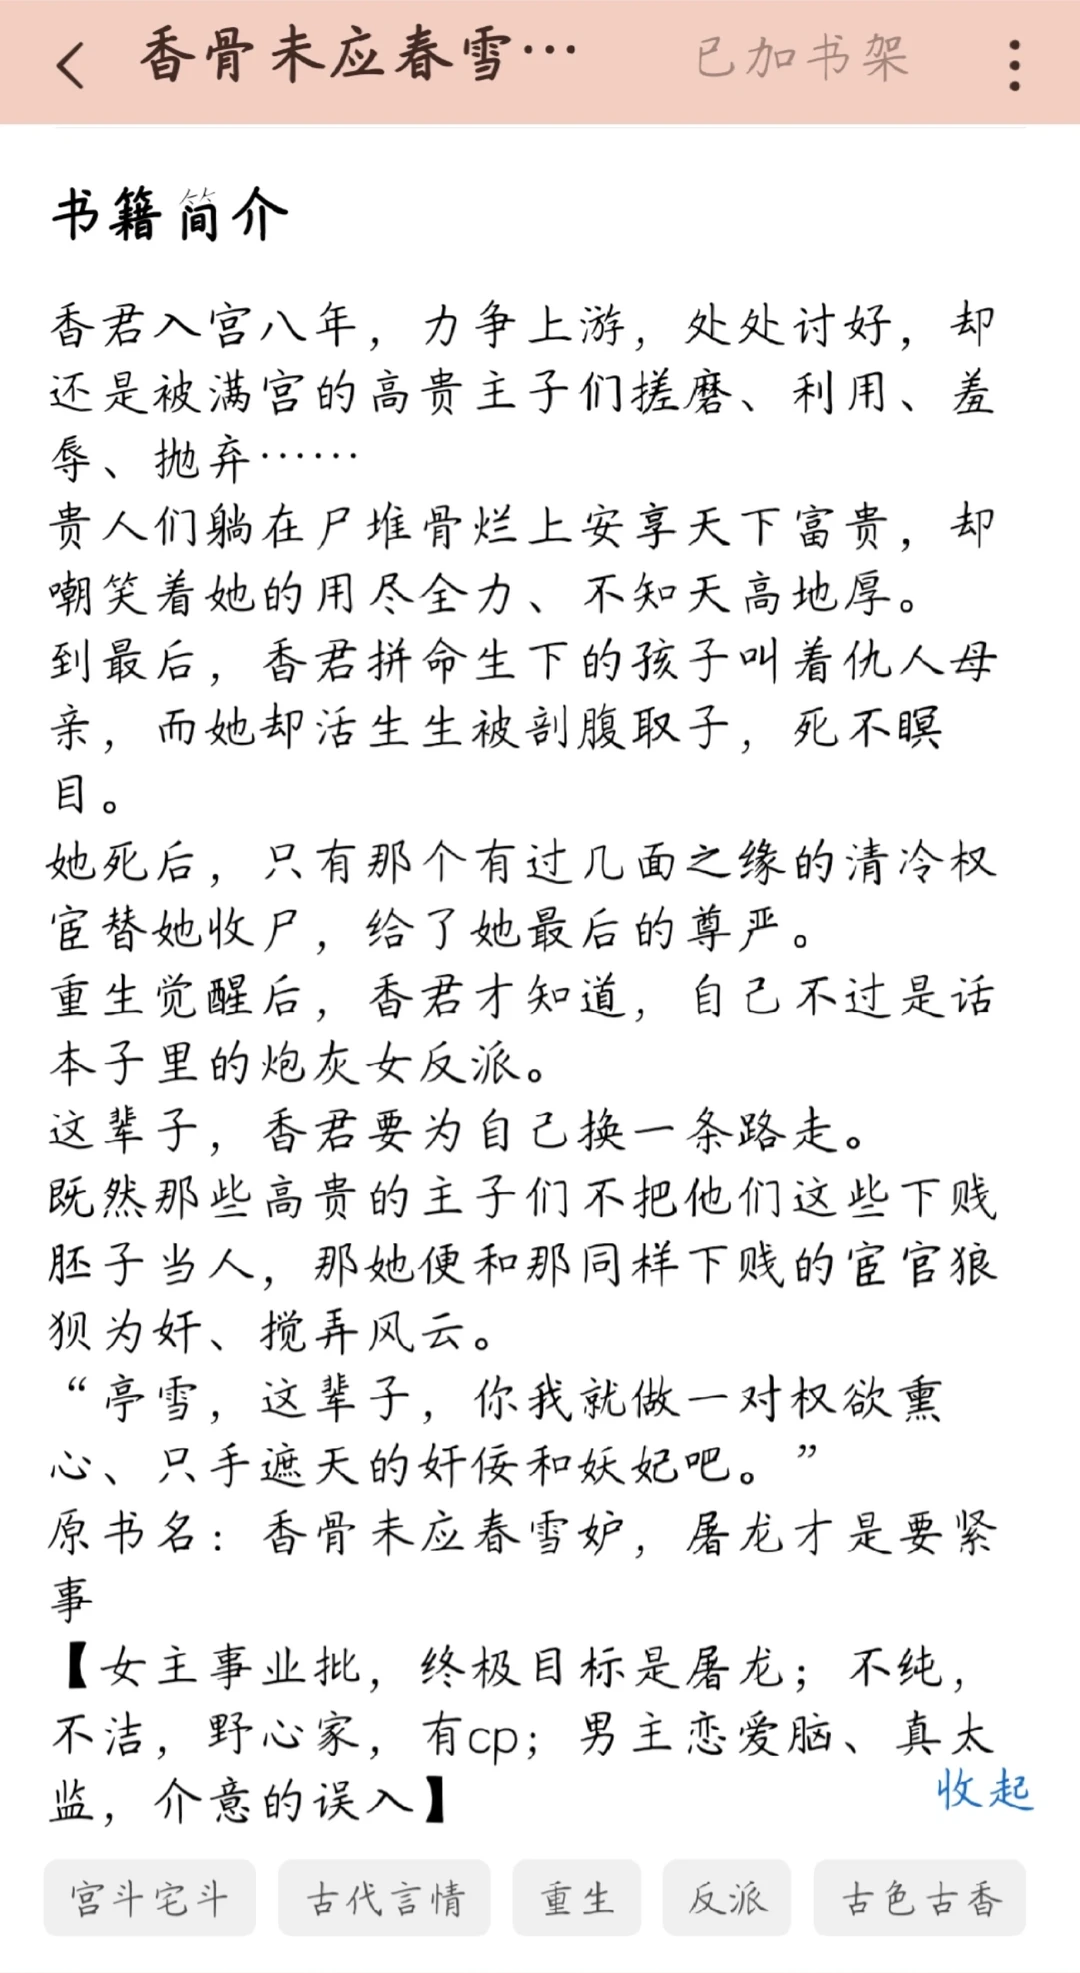 香骨未应春雪…
已加书架
书籍简介
香君入宫八年，力争上游，处处讨好，却
还是被满宫的高贵主子们搓磨、利用、羞
辱、抛弃……
贵人们躺在尸堆骨烂上安享天下富贵，却
嘲笑着她的用尽全力、不知天高地厚。
到最后，香君拼命生下的孩子叫着仇人母
亲，而她却活生生被剖腹取子，死不瞑
目。
她死后，只有那个有过几面之缘的清冷权
宦替她收尸，给了她最后的尊严。
重生觉醒后，香君才知道，自己不过是话
本子里的炮灰女反派。
这辈子，香君要为自己换一条路走。
既然那些高贵的主子们不把他们这些下贱
胚子当人，那她便和那同样下贱的宦官狼
狈为奸、搅弄风云。
“亭雪，这辈子，你我就做一对权欲熏
心、只手遮天的奸佞和妖妃吧。”
原书名：香骨未应春雪妒，屠龙才是要紧
事
【女主事业批，终极目标是屠龙；不纯，
不洁，野心家，有cp；男主恋爱脑、真太
监，介意的误入】
收起
宫斗宅斗
古代言情
重生
反派
古色古香